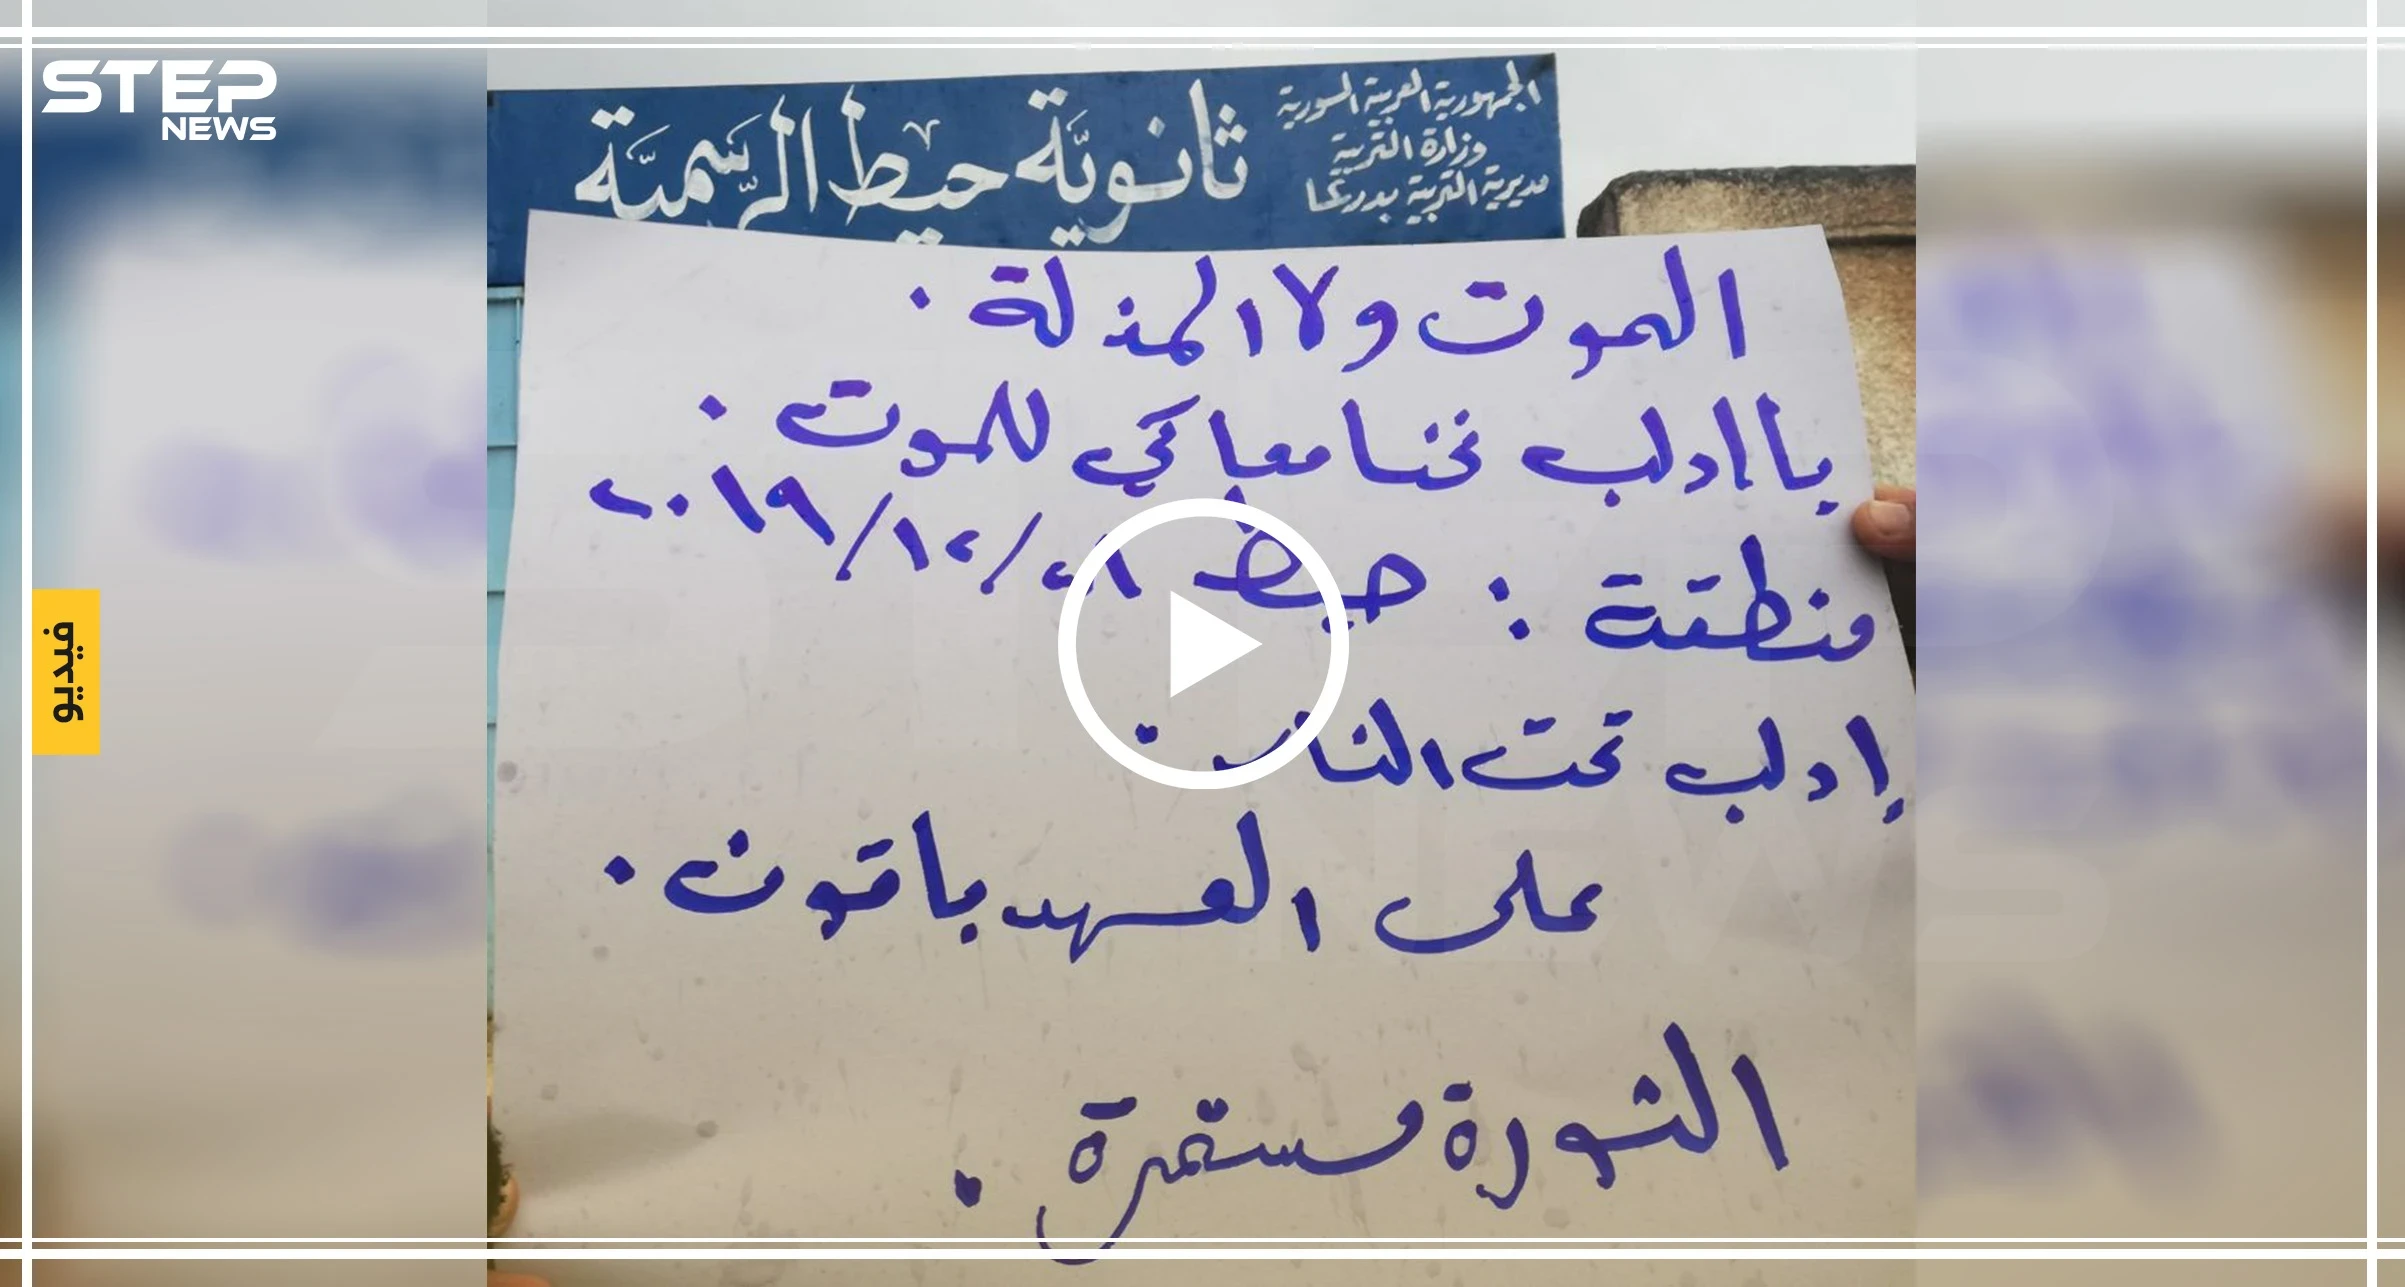 STEP
NEWS
الجمهورية العربية السورية
وزارة التربية
مديرية التربية بدرعا
ثانوية حيط الرسمية
الموت ولا المذلة.
يا ادلب نحنا معاكي للموت.
منطقة: حيط ٢٨/١٢/٢٠١٩
إدلب تحت النار.
على العهد باقون.
الثورة مستمرة.
فيديو